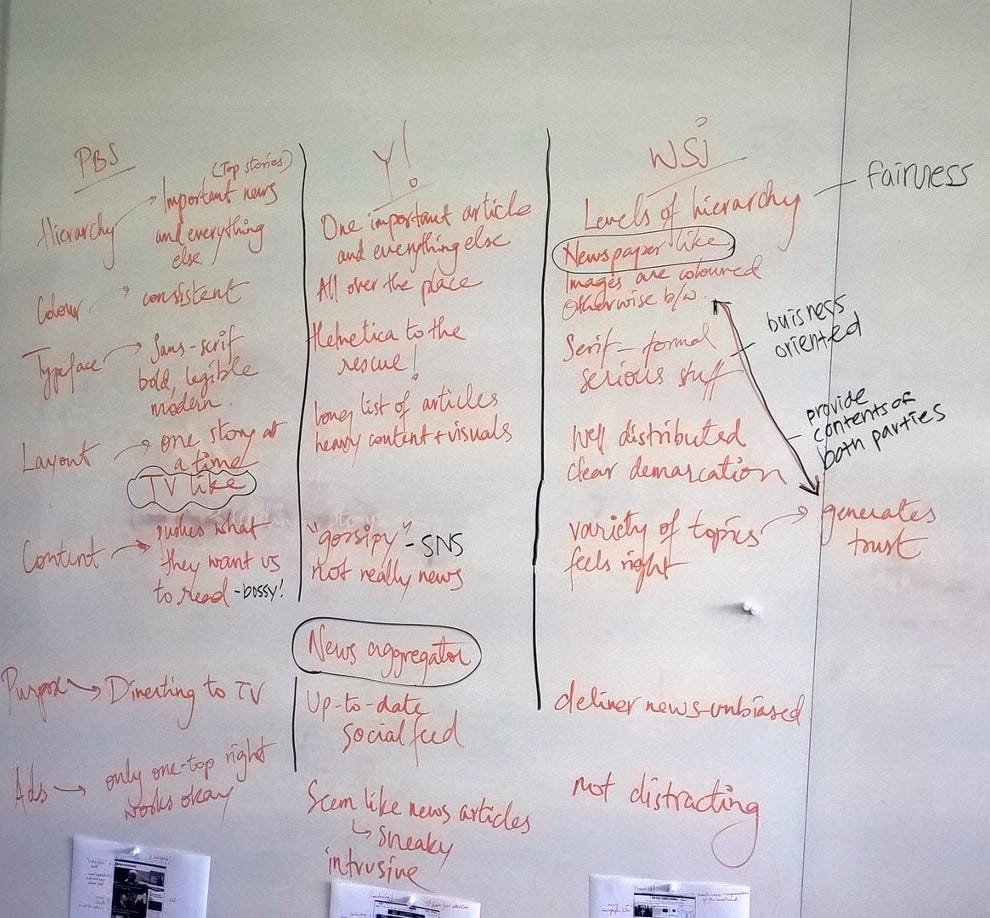 PBS
(Top stories)
Hierarchy → Important news
and everything
else
Colour → consistent
Typeface → Sans-serif
bold, legible
modern.
Layout → one story at
a time
TV like
Content → pushes what
they want us
to read - bossy!
Purpose → Directing to TV
Ads → only one-top right
works okay
Y!
One important article
and everything else
All over the place
Helvetica to the
rescue!
Long list of articles
heavy content + visuals
"gossipy" - SNS
not really news
News aggregator
Up-to-date
social feed
Seem like news articles
↳ sneaky
intrusive
WSJ
Levels of hierarchy - fairness
Newspaper like
Images are coloured
otherwise b/w.
Serif - formal
serious stuff
buisness
oriented
Well distributed
clear demarcation
provide
contents of
both parties
variety of topics → generates
feels right
trust
deliver news-unbiased
Not distracting